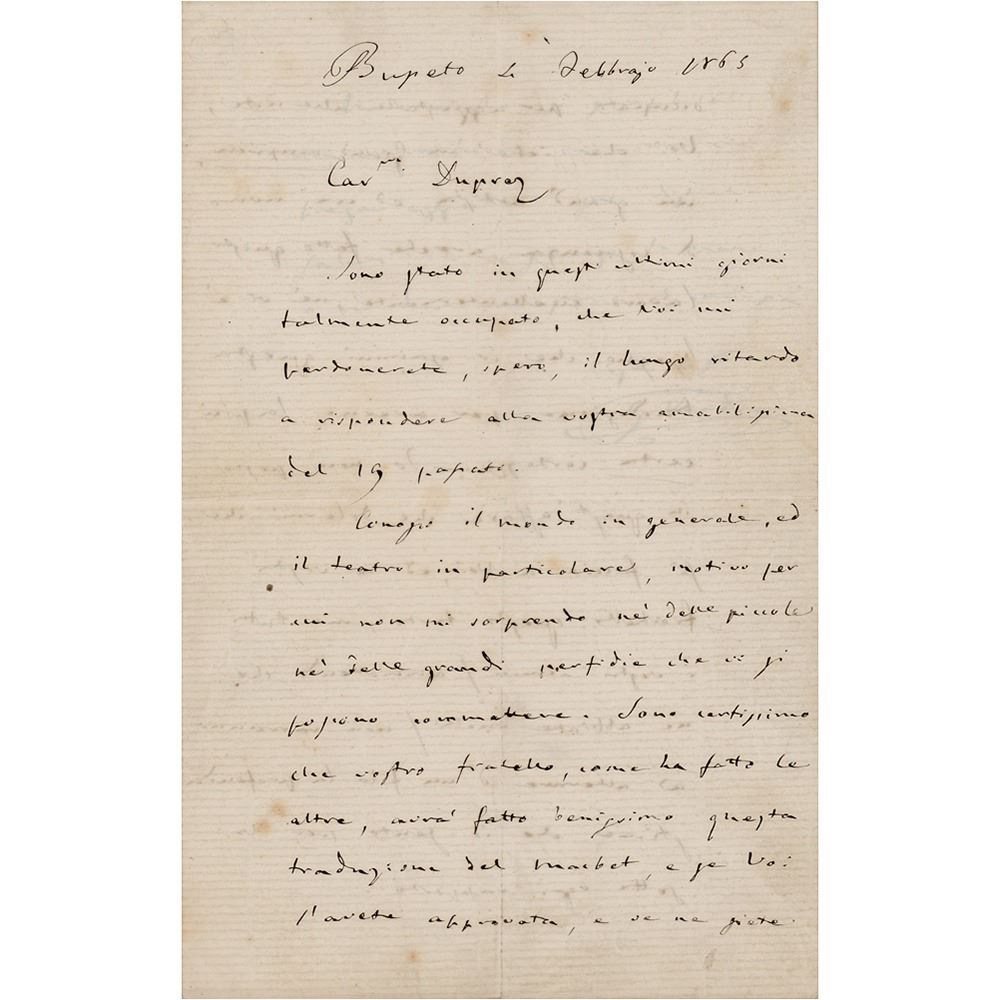 Busseto 4 Febbrajo 1865
Car.mo Duprez
Sono stato in questi ultimi giorni
talmente occupato, che Voi mi
perdonerete, spero, il lungo ritardo
a rispondere alla vostra amabilissima
del 19 passato.
Conosco il mondo in generale, ed
il teatro in particolare, motivo per
cui non mi sorprendo nè delle piccole
nè delle grandi perfidie che vi si
possono commettere. Sono certissimo
che vostro fratello, come ha fatto le
altre, avrà fatto benissimo questa
traduzione del Macbet, e se Voi
l'avete approvata, e ve ne siete